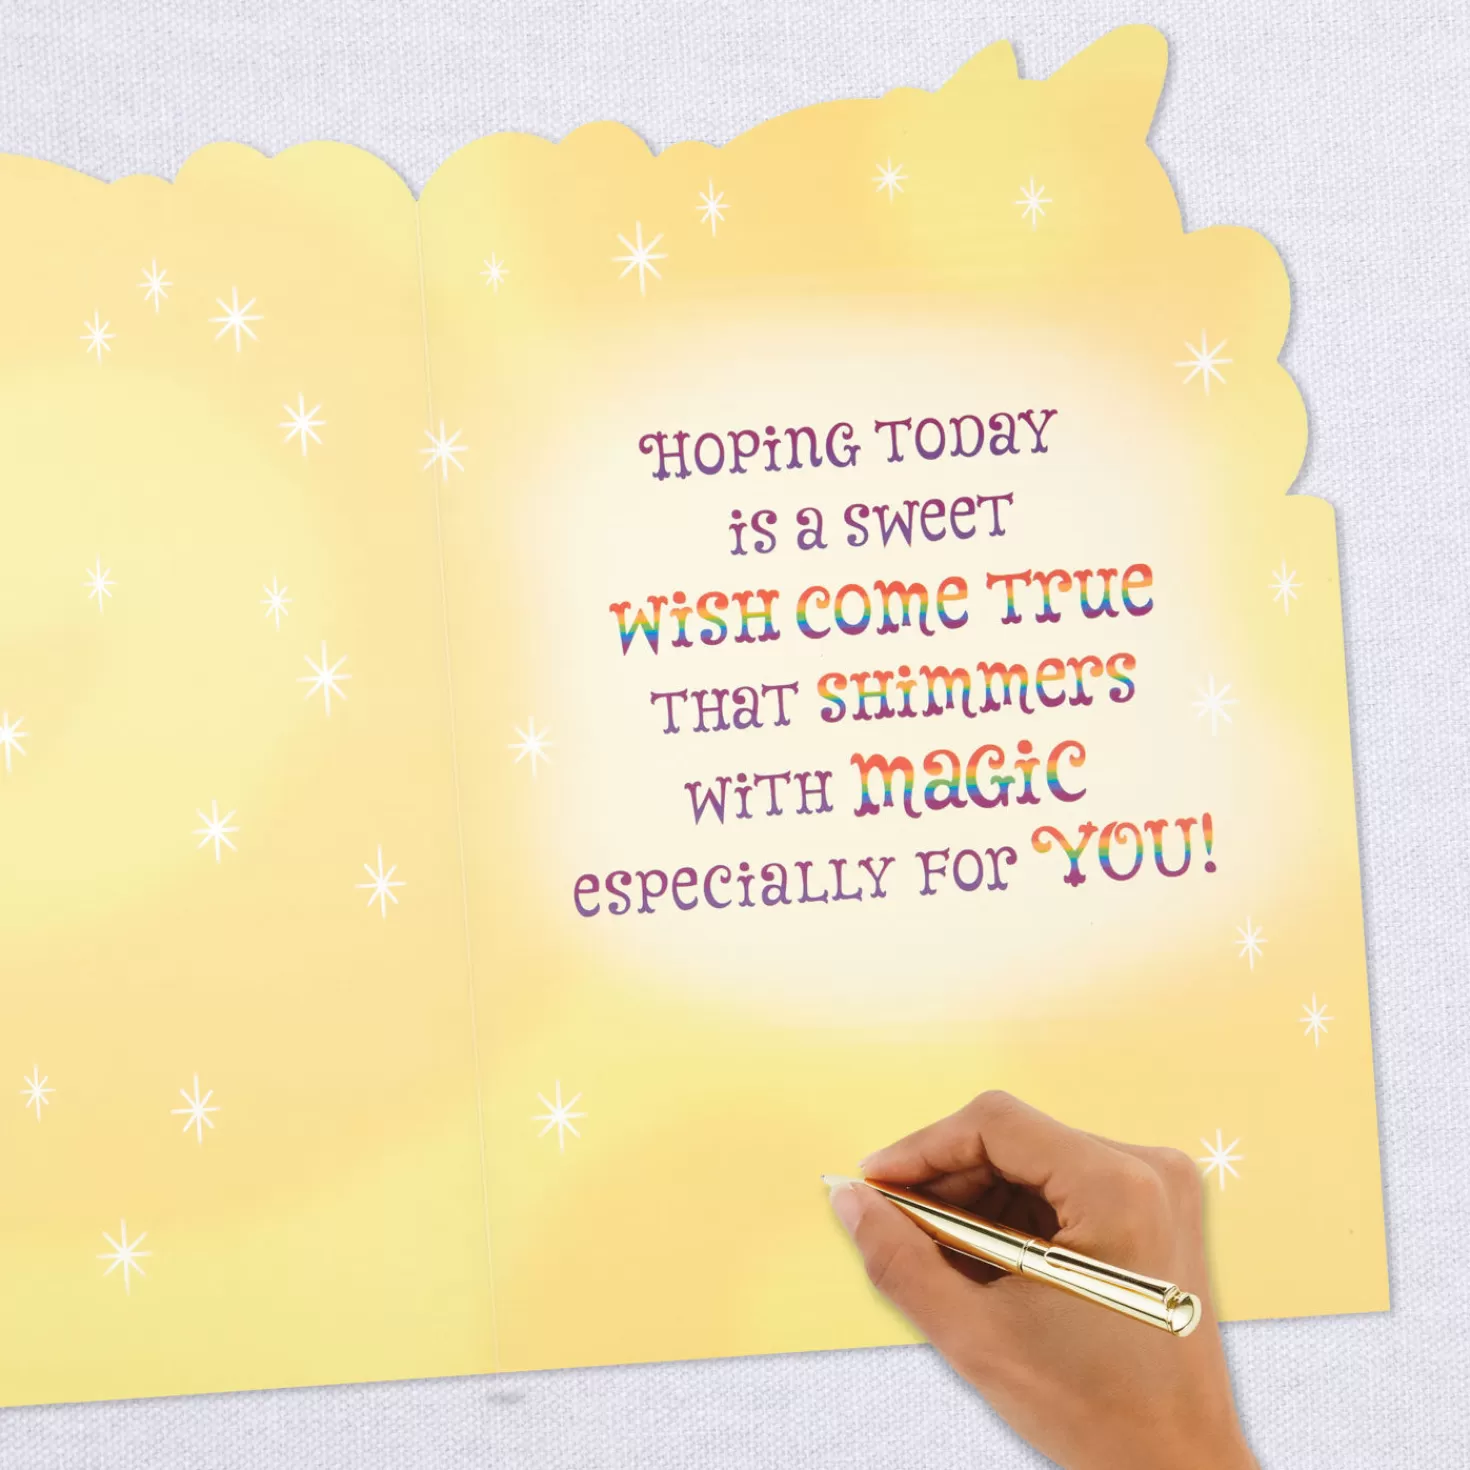 Hoping today
is a sweet
wish come true
that shimmers
with magic
especially for YOU!